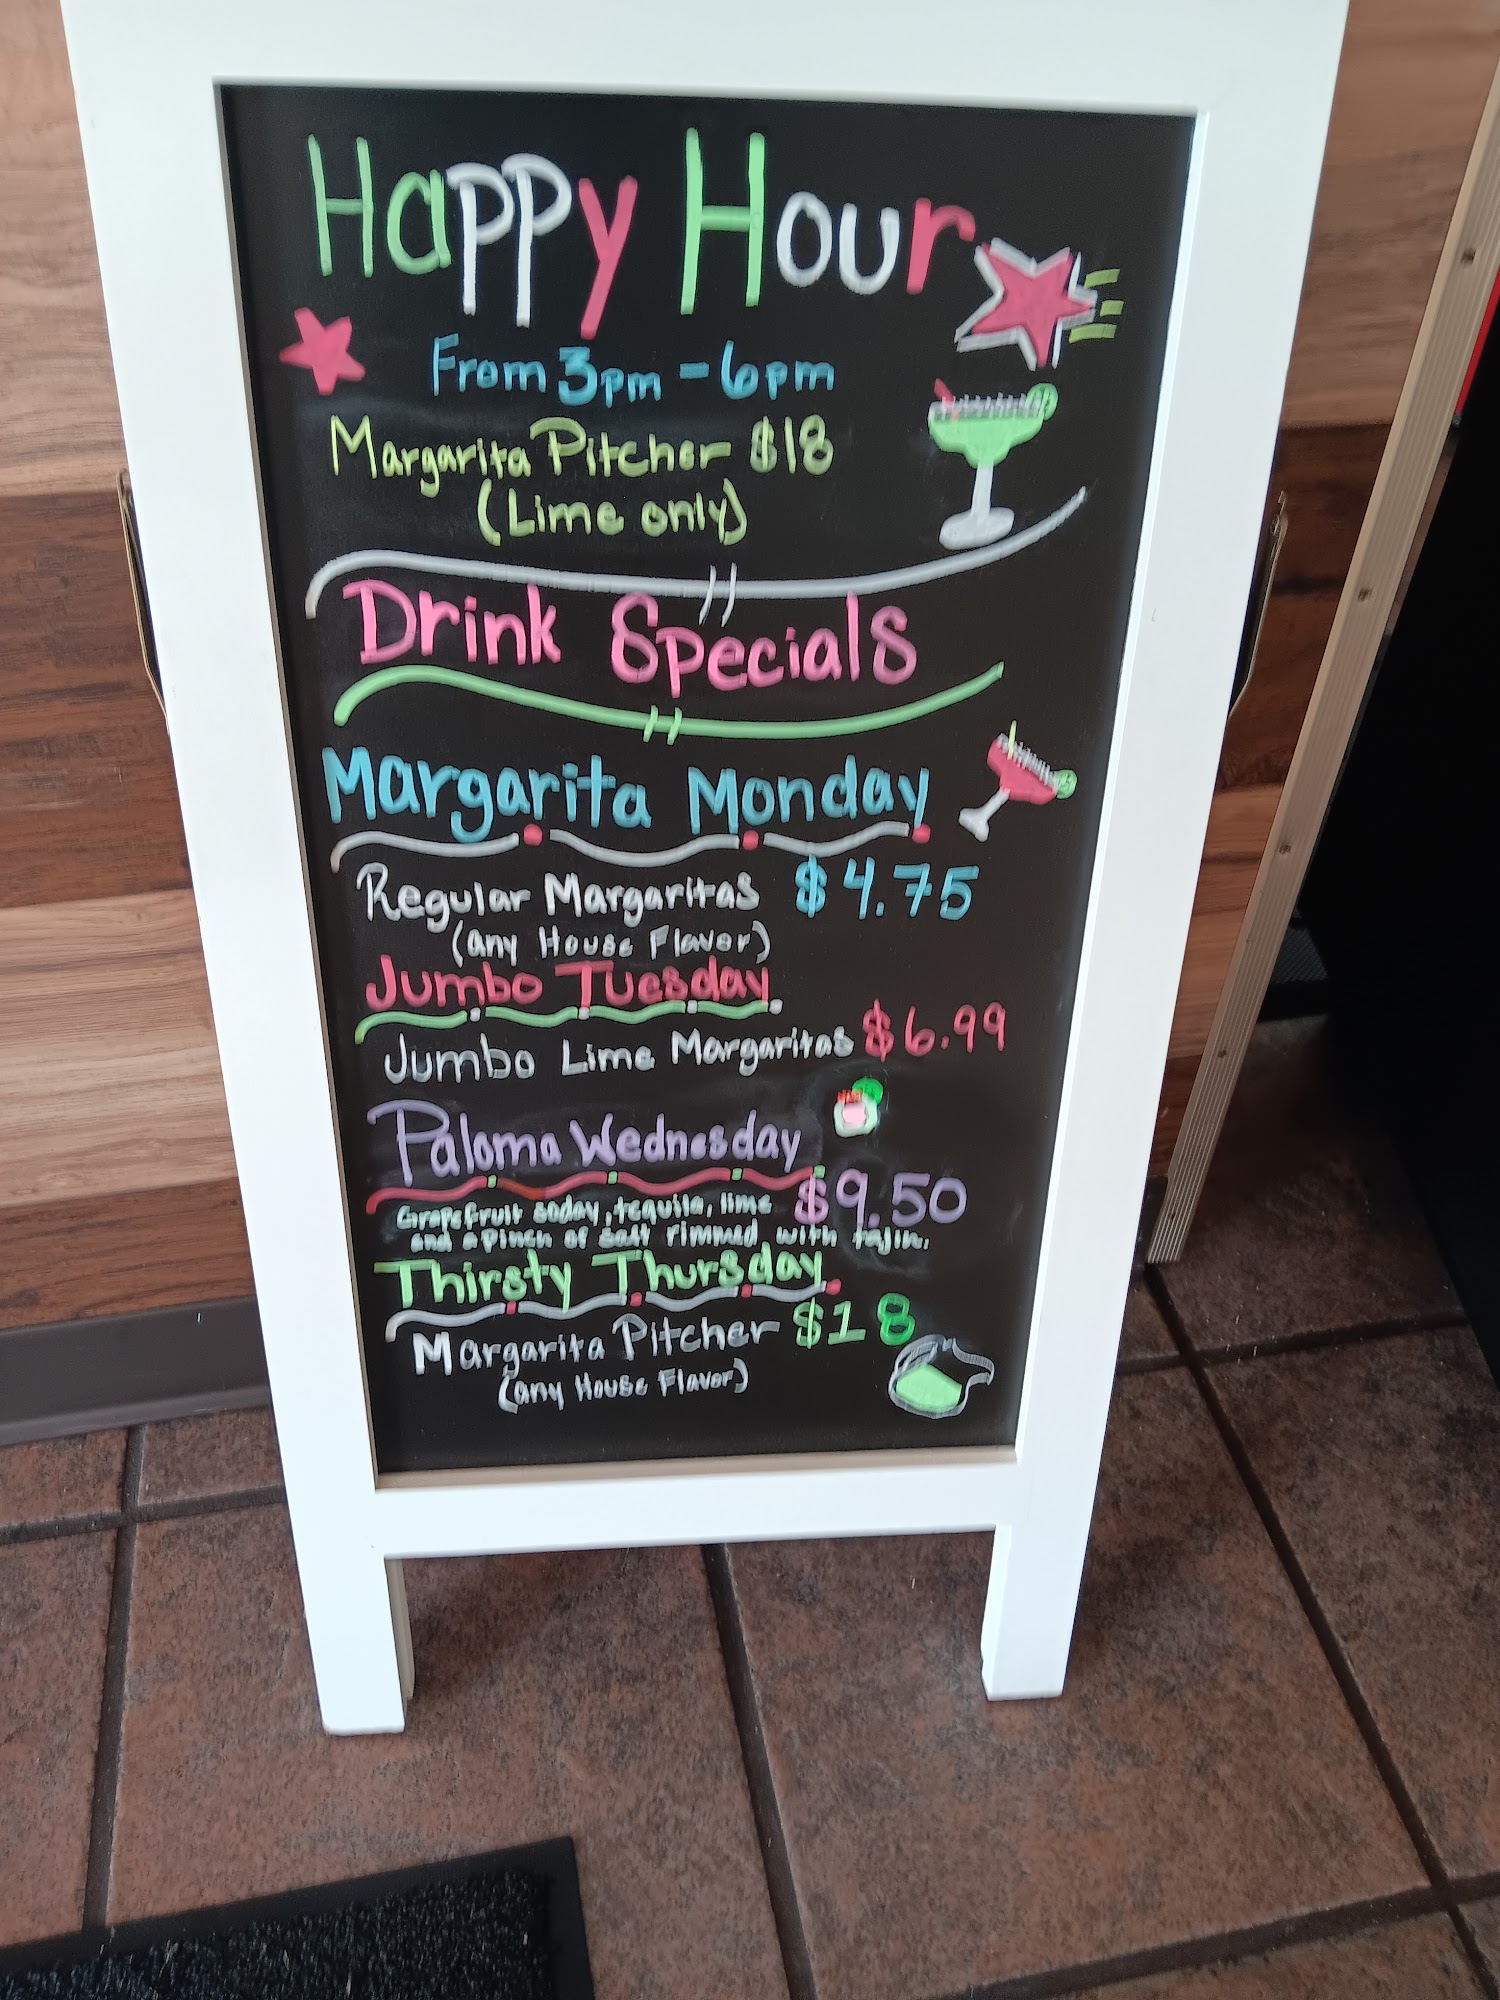 Happy Hour
From 3pm - 6pm
Margarita Pitcher $18
(Lime only)
Drink Specials
Margarita Monday
Regular Margaritas $4.75
(any House Flavor)
Jumbo Tuesday
Jumbo Lime Margaritas $6.99
Paloma Wednesday
Grapefruit soday, tequila, lime $9.50
and a pinch of salt rimmed with tajin.
Thirsty Thursday
Margarita Pitcher $18
(any House Flavor)